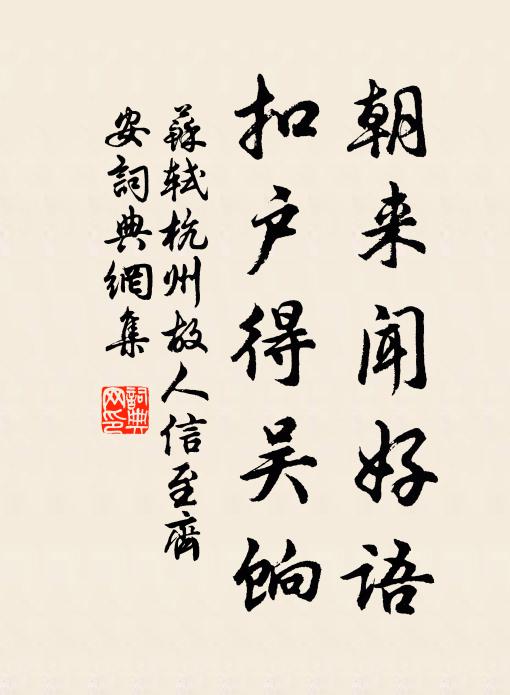 朝来闻好语
扣户得吴饷
蘇軾杭州故人信至齊
安詞典網集
詞典
网印